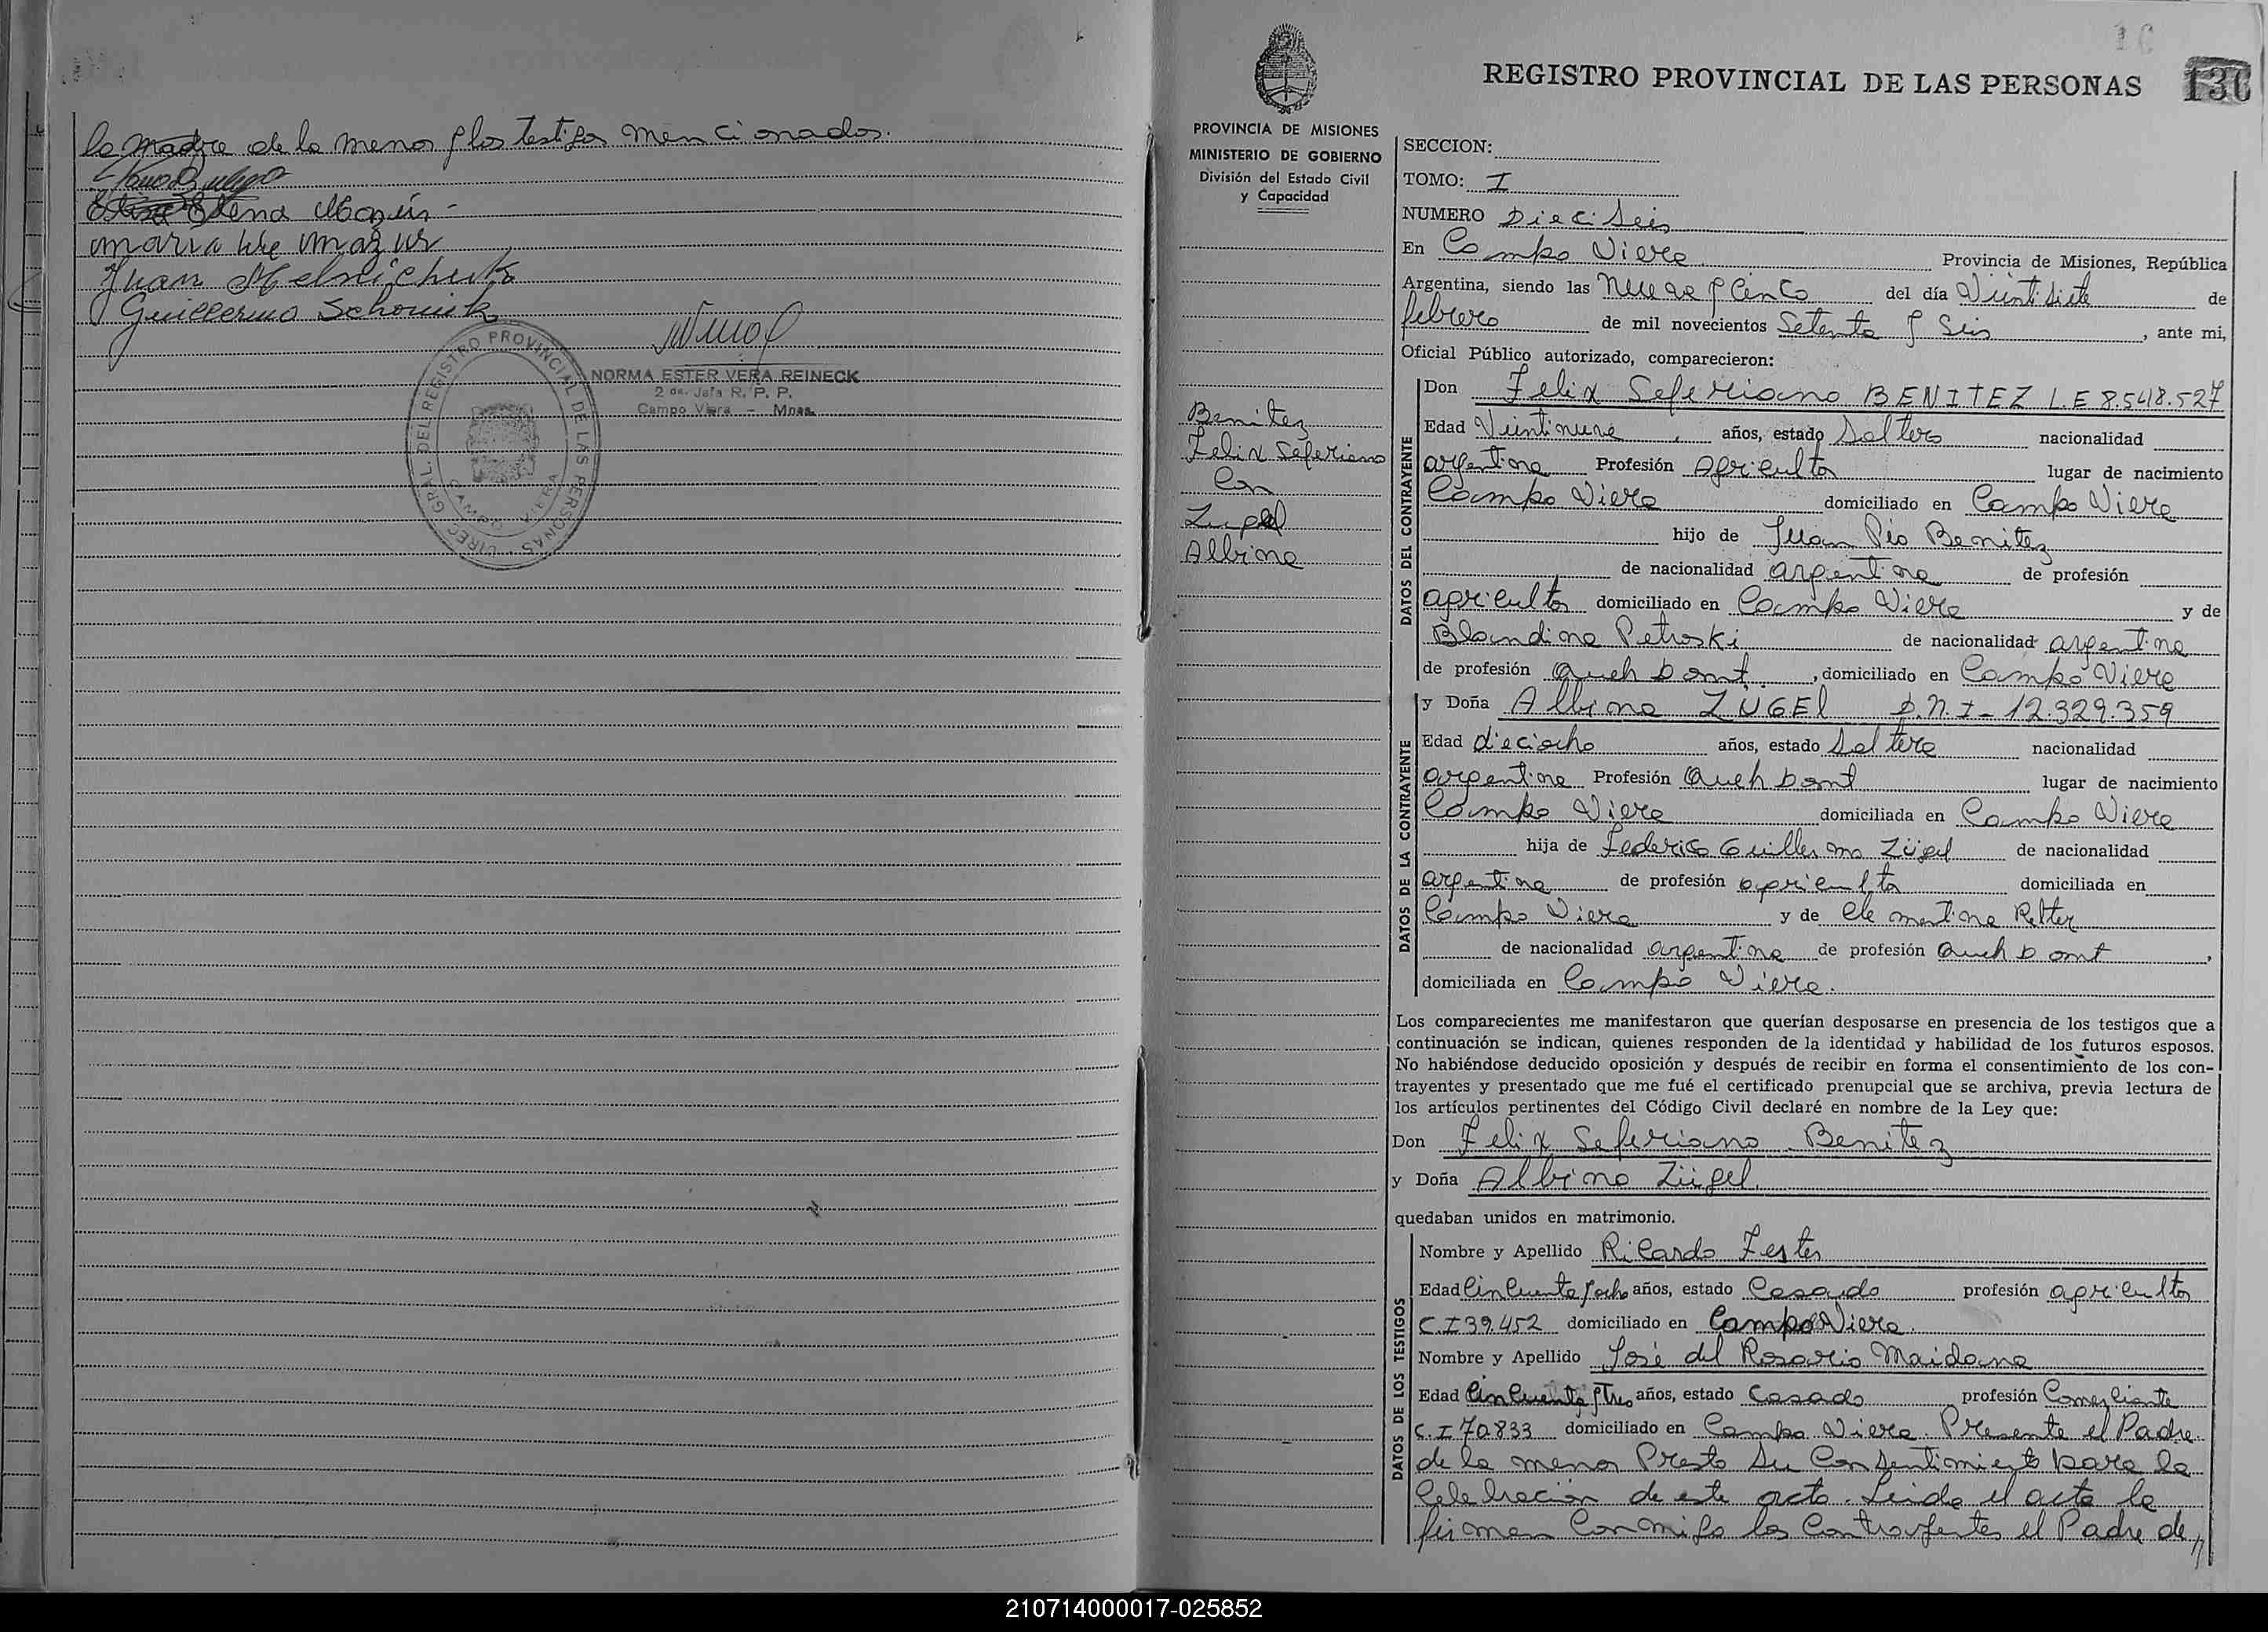 la madre de la menor y los testigos mencionados.
Elena Mazur
maria
Juan Melnichuk
Guillermo Schonick
DIREC. GRAL. DEL REGISTRO PROVINCIAL DE LAS PERSONAS
CAMPO VIERA
NORMA ESTER VERA REINECK
2 da. Jefa R. P. P.
Campo Viera - Mnes.
REGISTRO PROVINCIAL DE LAS PERSONAS
PROVINCIA DE MISIONES
MINISTERIO DE GOBIERNO
División del Estado Civil
y Capacidad
Benitez
Felix Seferiano
Con
Zugel
Albina
SECCION:
TOMO: I
NUMERO Dieciseis
En Campo Viera Provincia de Misiones, República
Argentina, siendo las Nueve y Cinco del día Veintisiete de
febrero de mil novecientos Setenta y Seis, ante mi,
Oficial Público autorizado, comparecieron:
DATOS DEL CONTRAYENTE
Don Felix Seferiano BENITEZ L.E 8.548.527
Edad Veintinueve años, estado Soltero nacionalidad
argentina Profesión Agricultor lugar de nacimiento
Campo Viera domiciliado en Campo Viera
hijo de Juan Pio Benitez
de nacionalidad argentina de profesión
agricultor domiciliado en Campo Viera y de
Blandina Petroski de nacionalidad argentina
de profesión Queh Domt, domiciliado en Campo Viera
DATOS DE LA CONTRAYENTE
y Doña Albina ZÜGEL D.N.I- 12.329.359
Edad dieciocho años, estado Soltera nacionalidad
argentina Profesión Queh Domt lugar de nacimiento
Campo Viera domiciliada en Campo Viera
hija de Federico Guillermo Zügel de nacionalidad
argentina de profesión agricultor domiciliada en
Campo Viera y de Clementina Retter
de nacionalidad argentina de profesión Queh Domt,
domiciliada en Campo Viera.
Los comparecientes me manifestaron que querían desposarse en presencia de los testigos que a
continuación se indican, quienes responden de la identidad y habilidad de los futuros esposos.
No habiéndose deducido oposición y después de recibir en forma el consentimiento de los con-
trayentes y presentado que me fué el certificado prenupcial que se archiva, previa lectura de
los artículos pertinentes del Código Civil declaré en nombre de la Ley que:
Don Felix Seferiano Benitez
y Doña Albina Zügel
quedaban unidos en matrimonio.
DATOS DE LOS TESTIGOS
Nombre y Apellido Ricardo Fester
Edad Cincuenta y ocho años, estado Casado profesión agricultor
C.I 39.452 domiciliado en Campo Viera.
Nombre y Apellido José del Rosario Maidana
Edad Cincuenta y tres años, estado Casado profesión Comerciante
C.I 70.833 domiciliado en Campo Viera. Presente el Padre
de la menor Presto su Consentimiento para la
Celebracion de este acto. Leida el acta la
firman Conmigo los Contrayentes el Padre de //
210714000017-025852